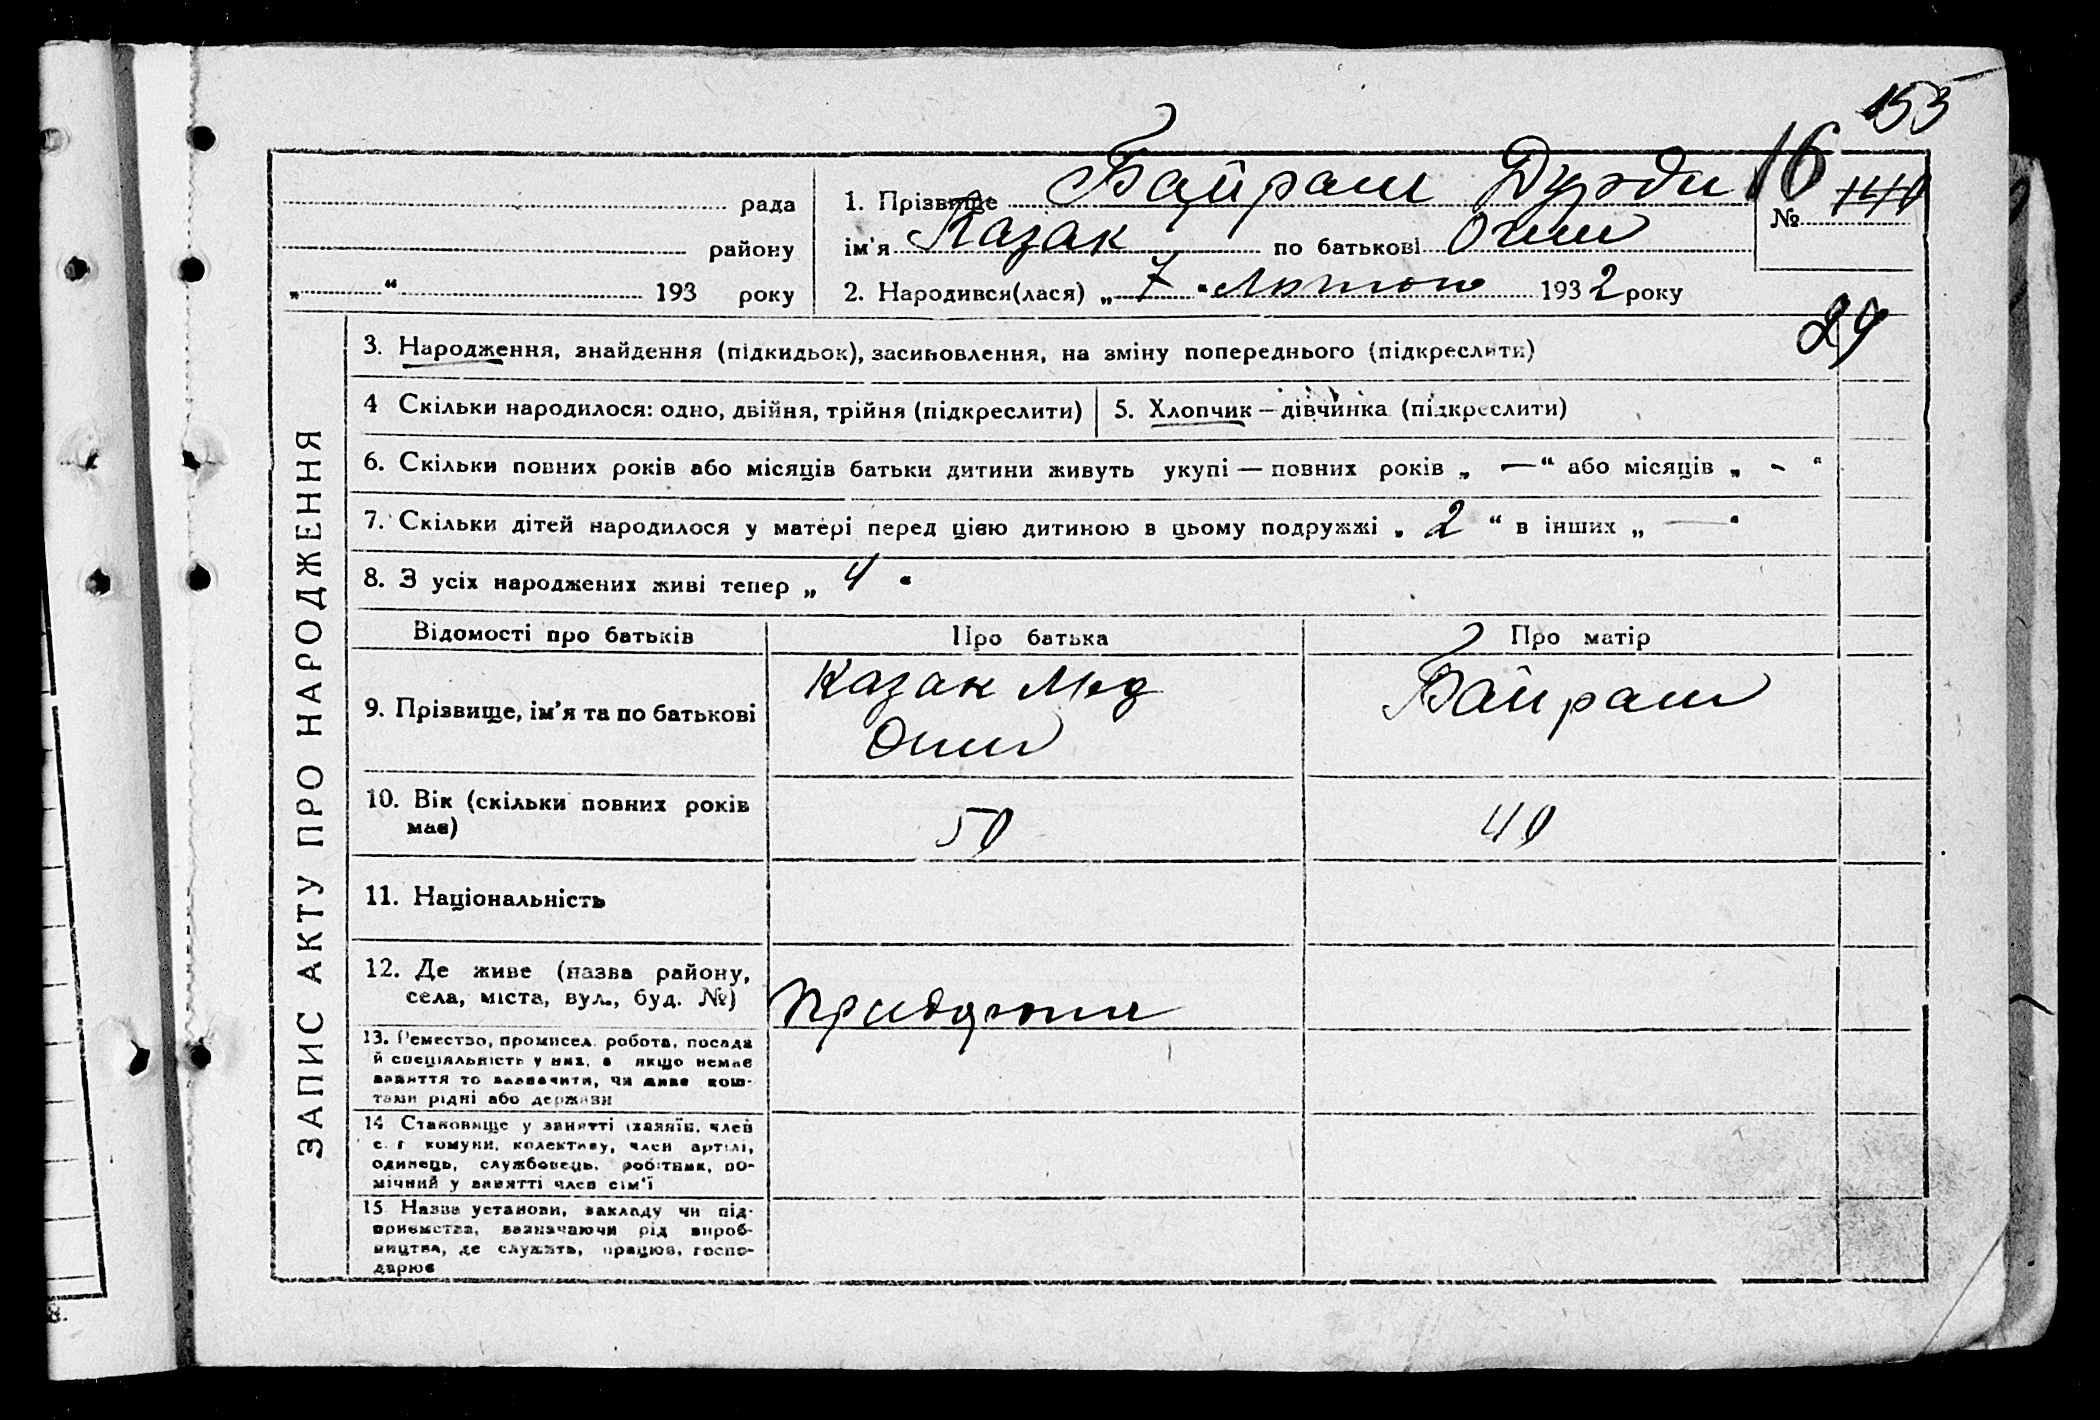 155
рада
району
„ “ 193 року
1. Прізвище Байрам Дурди
ім'я Казак по батькові Огли
2. Народився(лася) „ 7 “ Лютого 1932 року
16
№ 140
29
ЗАПИС АКТУ ПРО НАРОДЖЕННЯ
3. Народження, знайдення (підкидьок), засиновлення, на зміну попереднього (підкреслити)
4 Скільки народилося: одно, двійня, трійня (підкреслити)
5. Хлопчик — дівчинка (підкреслити)
6. Скільки повних років або місяців батьки дитини живуть укупі — повних років „ — “ або місяців „ - “
7. Скільки дітей народилося у матері перед цією дитиною в цьому подружжі „ 2 “ в інших „ — “
8. З усіх народжених живі тепер „ 4 “
Відомості про батьків
Про батька
Про матір
9. Прізвище, ім'я та по батькові
Казак Мед
Огли
Байрам
10. Вік (скільки повних років
має)
50
40
11. Національність
12. Де живе (назва району,
села, міста, вул., буд. №)
13. Ремество, промисел, робота, посада
й спеціяльність у них, а якщо немає
заняття то зазначити, чи живе кош-
тами рідні або держави
14 Становище у занятті (хазяїн, член
с. г комуни, колективу, член артілі,
одинець, службовець, робітник, по-
мічний у занятті член сім'ї
15 Назва установи, закладу чи під-
приємства, зазначаючи рід вироб-
ництва, де служить, працює, госпо-
дарює